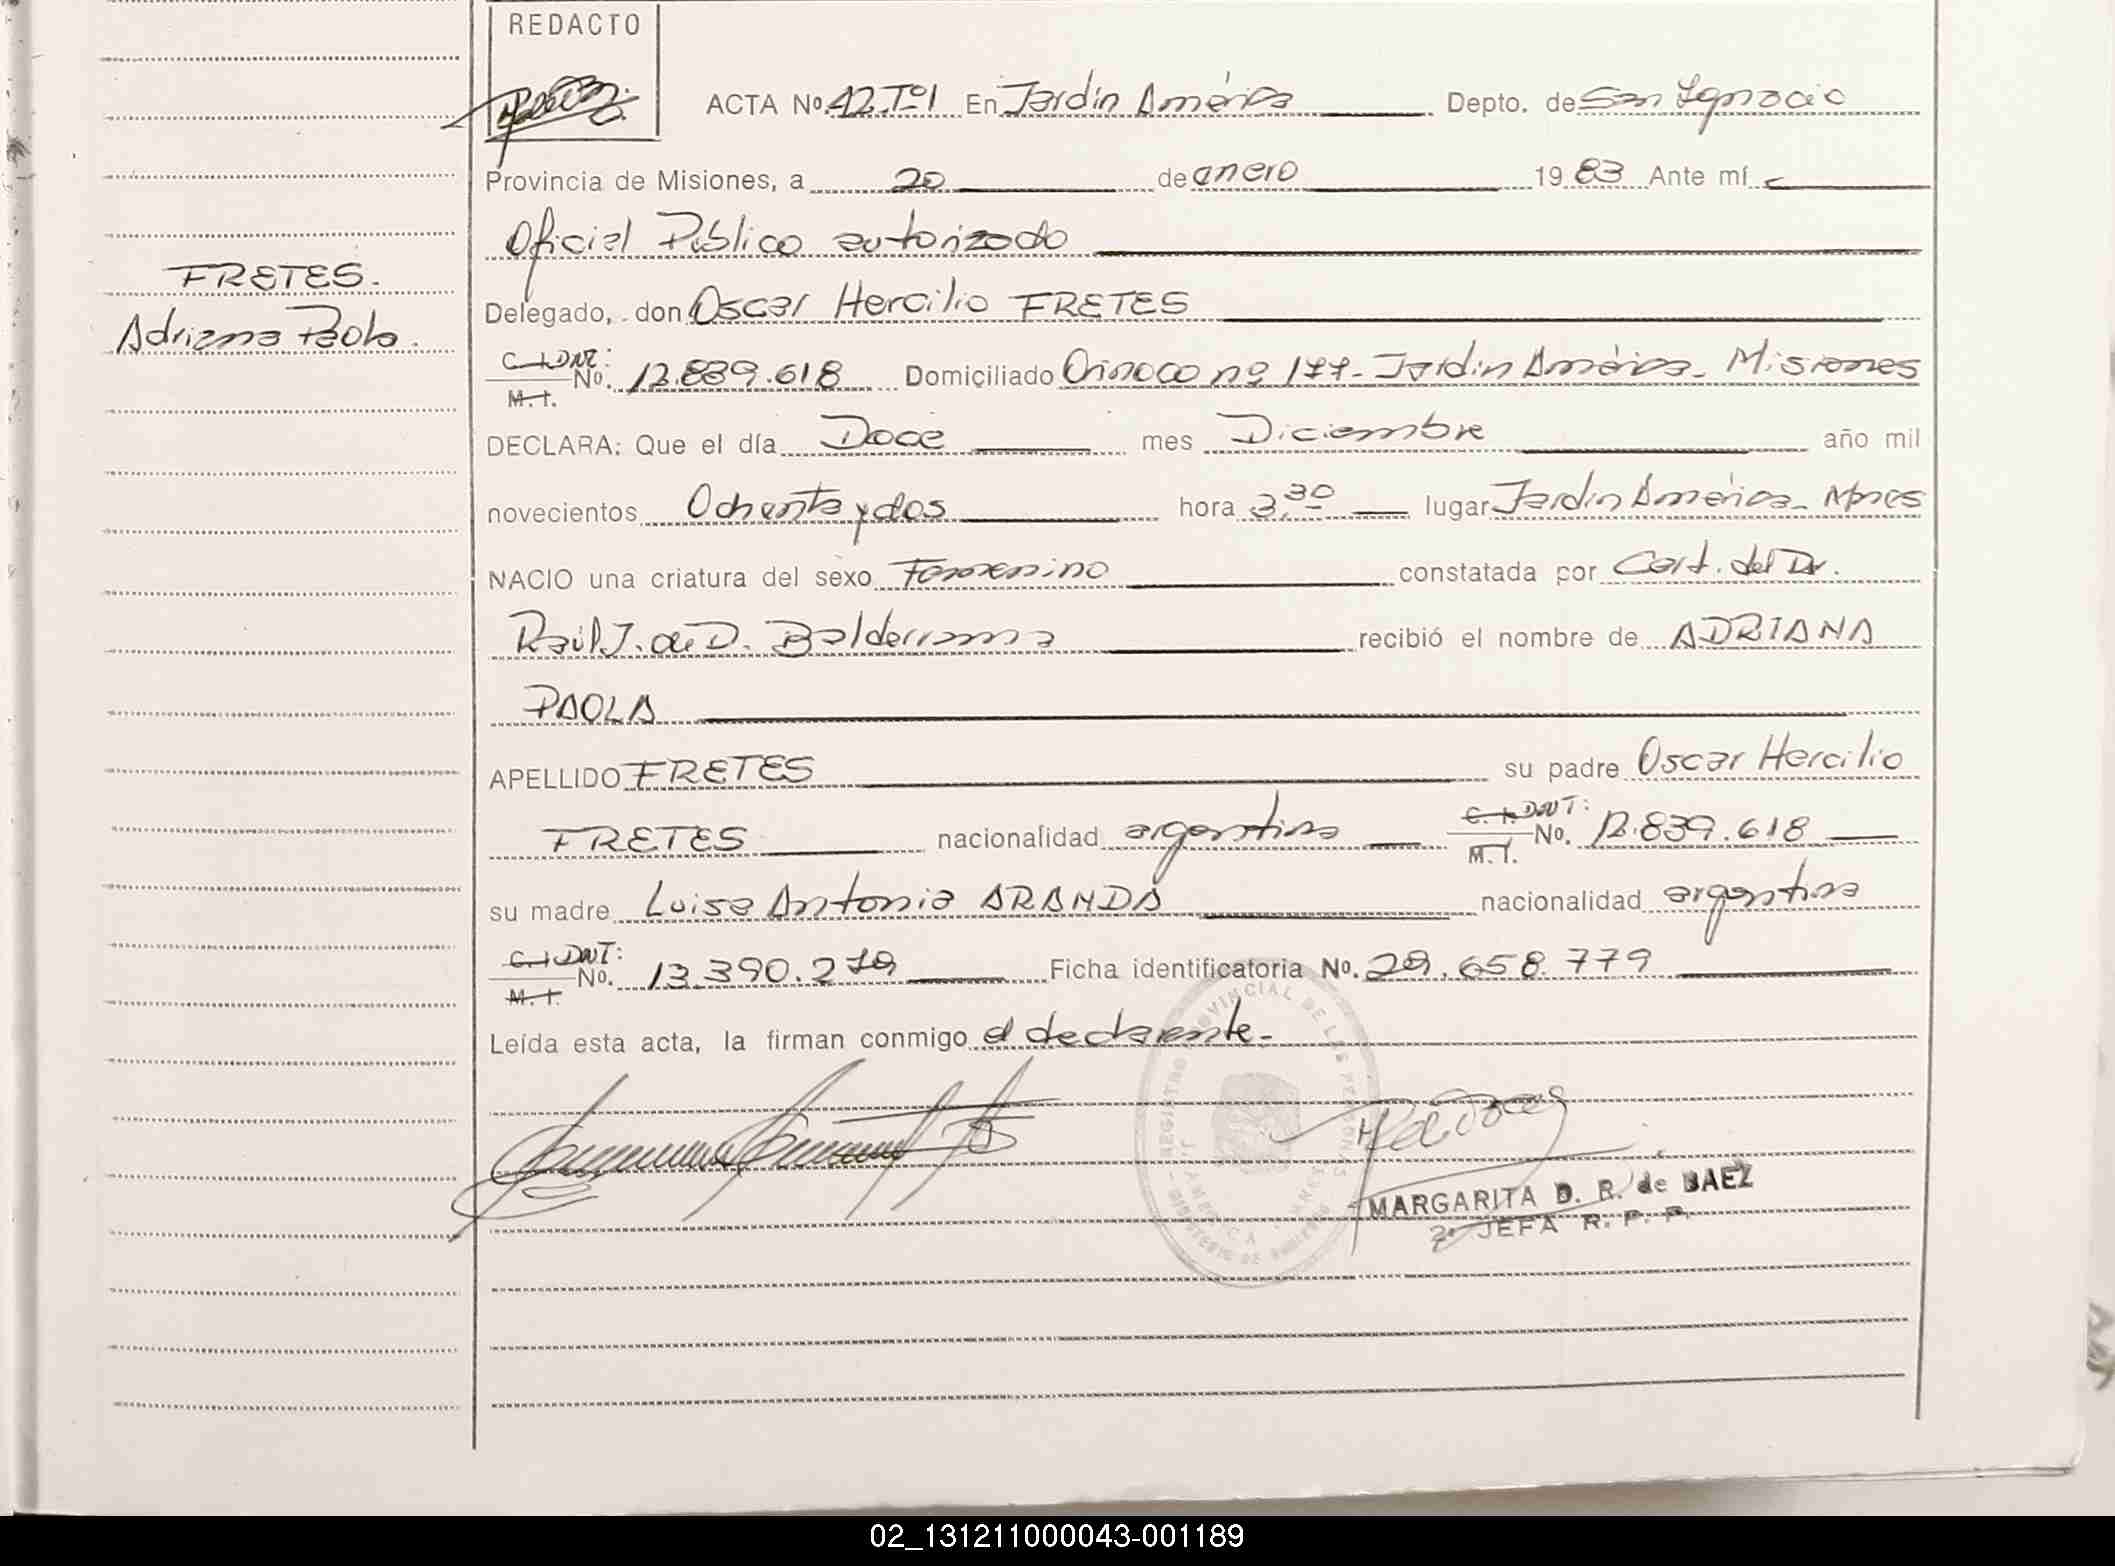 REDACTO
ACTA No. 42 Tº1 En Jardín América Depto. de San Ignacio
Provincia de Misiones, a 20 de enero 1983 Ante mí
Oficial Público autorizado
FRETES.
Adriana Paola.
Delegado, don Oscar Hercilio FRETES
C. I. DNI: No. 12.839.618 Domiciliado Orinoco nº 177- Jardín América- Misiones
M. I.
DECLARA: Que el día Doce mes Diciembre año mil
novecientos Ochenta y dos hora 3,30 lugar Jardín América- Mnes
NACIO una criatura del sexo Femenino constatada por Cert. del Dr.
Raúl J. de D. Balderrama recibió el nombre de ADRIANA
PAOLA
APELLIDO FRETES su padre Oscar Hercilio
FRETES nacionalidad argentina C. I. DNI: No. 12.839.618
M. I.
su madre Luisa Antonia ARANDA nacionalidad argentina
C. I. DNI: No. 13.390.279 Ficha identificatoria No. 29.658.779
M. I.
Leída esta acta, la firman conmigo el declarante.-
REGISTRO PROVINCIAL DE LAS PERSONAS
MINISTERIO DE GOBIERNO
MARGARITA D. R. de BAEZ
2º JEFA R. P. P.
02_131211000043-001189